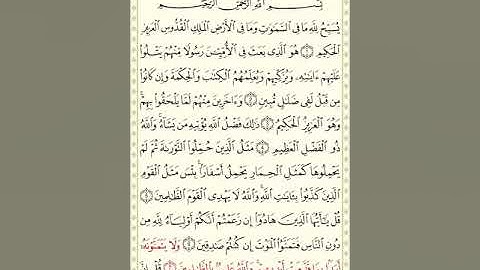 بِسْمِ ٱللَّهِ ٱلرَّحْمَٰنِ ٱلرَّحِيمِ
يُسَبِّحُ لِلَّهِ مَا فِى ٱلسَّمَٰوَٰتِ وَمَا فِى ٱلْأَرْضِ ٱلْمَلِكِ ٱلْقُدُّوسِ ٱلْعَزِيزِ
ٱلْحَكِيمِ ۝١ هُوَ ٱلَّذِى بَعَثَ فِى ٱلْأُمِّيِّـۧنَ رَسُولًا مِّنْهُمْ يَتْلُوا۟
عَلَيْهِمْ ءَايَٰتِهِۦ وَيُزَكِّيهِمْ وَيُعَلِّمُهُمُ ٱلْكِتَٰبَ وَٱلْحِكْمَةَ وَإِن كَانُوا۟
مِن قَبْلُ لَفِى ضَلَٰلٍ مُّبِينٍ ۝٢ وَءَاخَرِينَ مِنْهُمْ لَمَّا يَلْحَقُوا۟ بِهِمْ ۚ
وَهُوَ ٱلْعَزِيزُ ٱلْحَكِيمُ ۝٣ ذَٰلِكَ فَضْلُ ٱللَّهِ يُؤْتِيهِ مَن يَشَآءُ ۚ وَٱللَّهُ
ذُو ٱلْفَضْلِ ٱلْعَظِيمِ ۝٤ مَثَلُ ٱلَّذِينَ حُمِّلُوا۟ ٱلتَّوْرَىٰةَ ثُمَّ لَمْ
يَحْمِلُوهَا كَمَثَلِ ٱلْحِمَارِ يَحْمِلُ أَسْفَارًۢا ۚ بِئْسَ مَثَلُ ٱلْقَوْمِ
ٱلَّذِينَ كَذَّبُوا۟ بِـَٔايَٰتِ ٱللَّهِ ۚ وَٱللَّهُ لَا يَهْدِى ٱلْقَوْمَ ٱلظَّٰلِمِينَ ۝٥
قُلْ يَٰٓأَيُّهَا ٱلَّذِينَ هَادُوٓا۟ إِن زَعَمْتُمْ أَنَّكُمْ أَوْلِيَآءُ لِلَّهِ مِن
دُونِ ٱلنَّاسِ فَتَمَنَّوُا۟ ٱلْمَوْتَ إِن كُنتُمْ صَٰدِقِينَ ۝٦ وَلَا يَتَمَنَّوْنَهُۥٓ
أَبَدًۢا بِمَا قَدَّمَتْ أَيْدِيهِمْ ۚ وَٱللَّهُ عَلِيمٌۢ بِٱلظَّٰلِمِينَ ۝٧ قُلْ إِنَّ